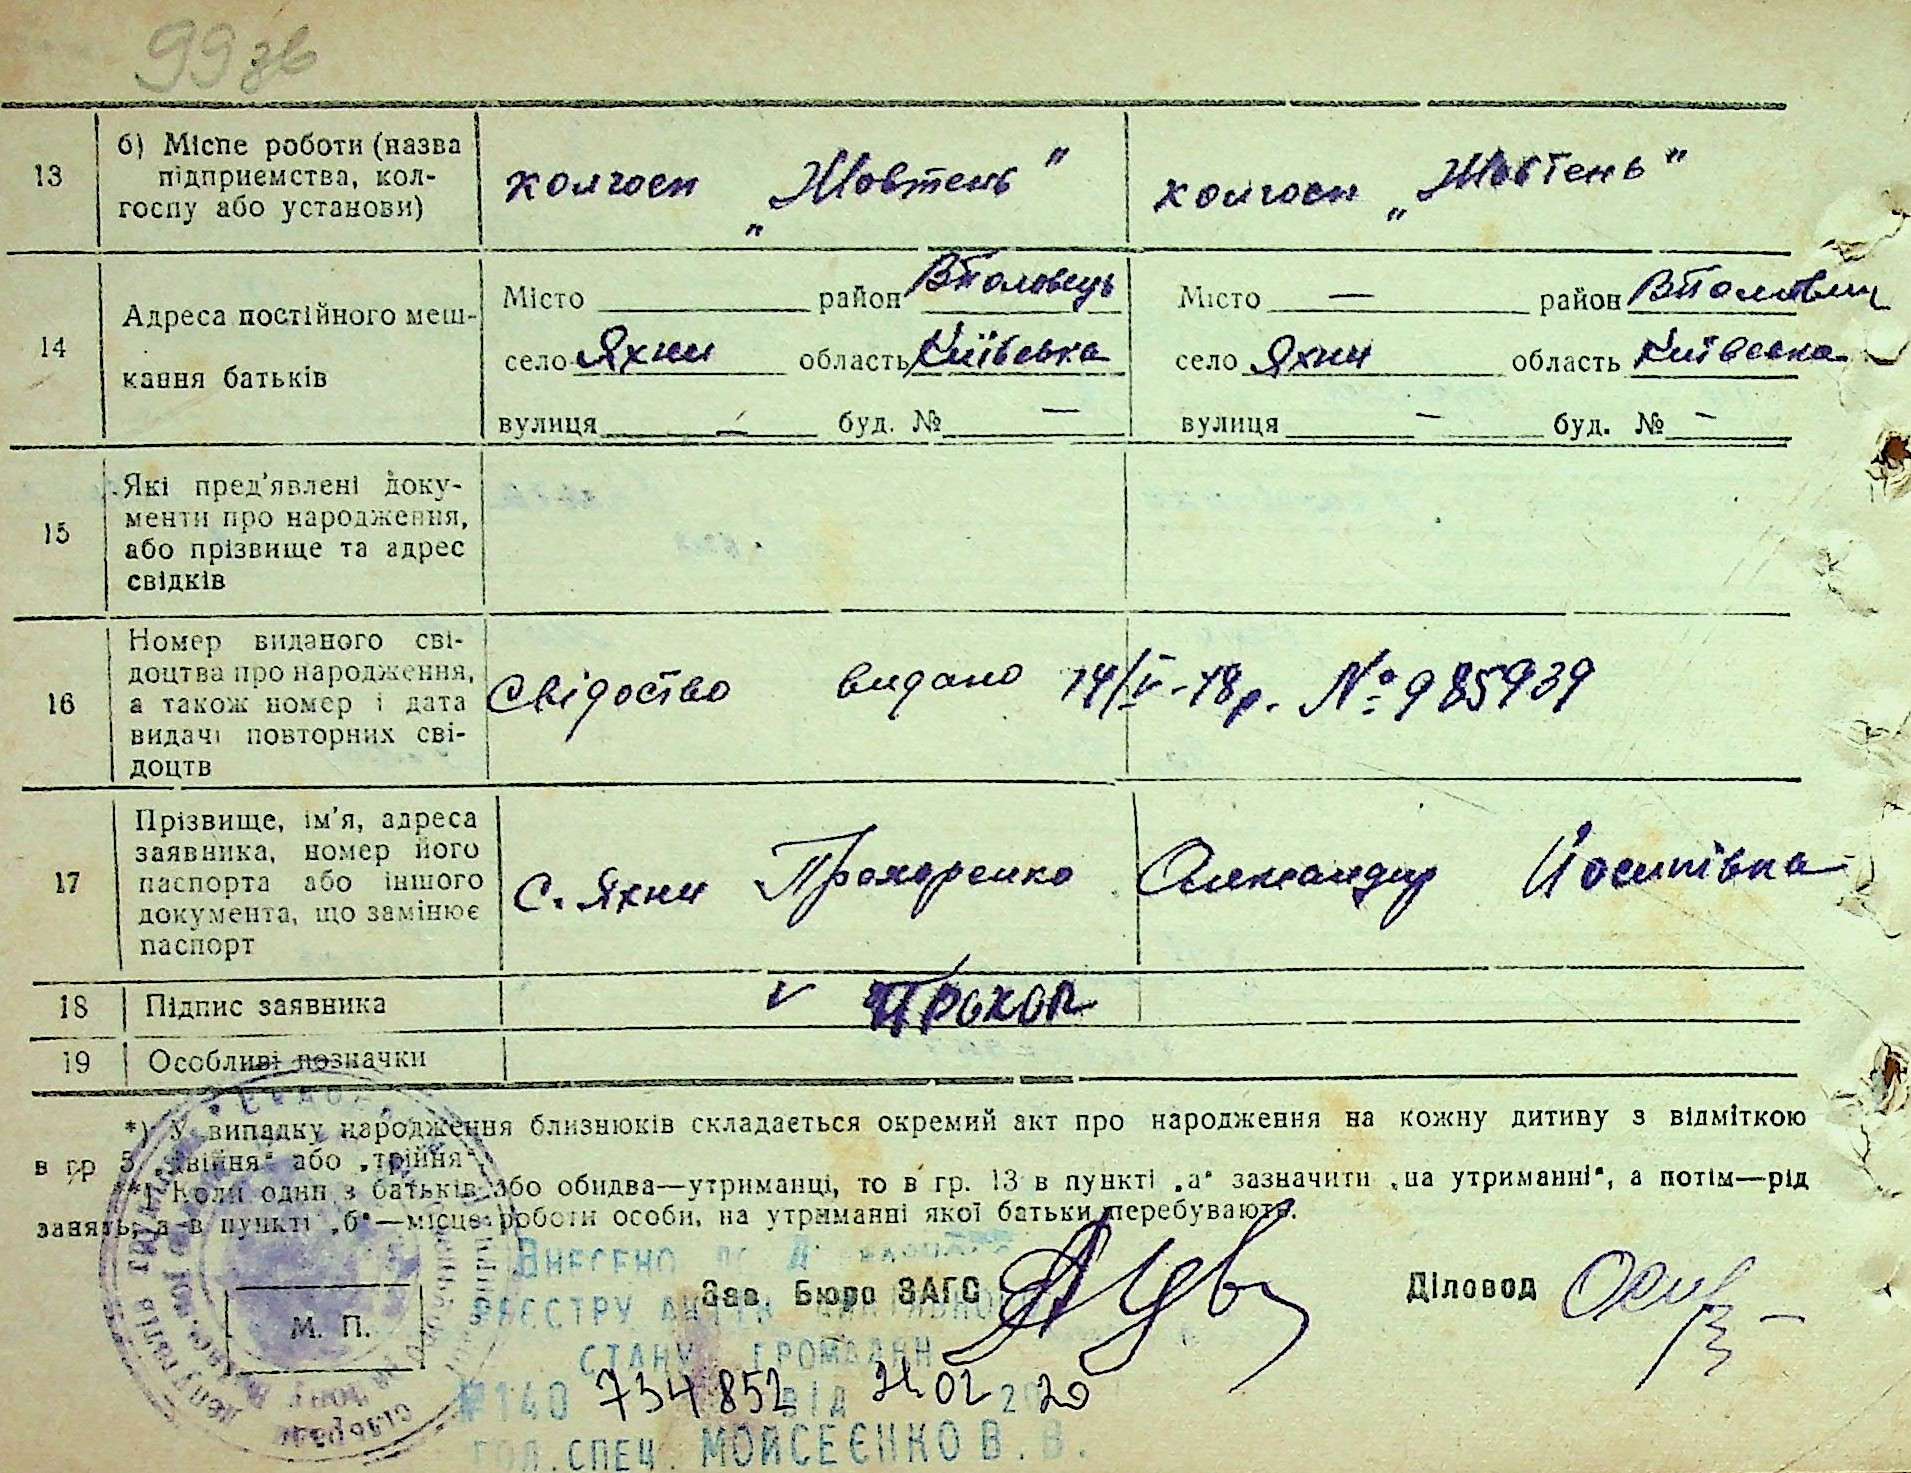 99 зв
13 б) Місце роботи (назва підприємства, колгоспу або установи)
колгосп „Жовтень" колгосп „Жовтень"
14 Адреса постійного мешкання батьків
Місто район ВПоловець Місто — район
село Яхни область Київська село Яхни область Київська
вулиця — буд. № — вулиця — буд. № —
15 Які пред'явлені документи про народження, або прізвище та адрес свідків
16 Номер виданого свідоцтва про народження, а також номер і дата видачі повторних свідоцтв
Свідоство видано 14/V-48р. № 985939
17 Прізвище, ім'я, адреса заявника, номер його паспорта або іншого документа, що замінює паспорт
с. Яхни Прохоренко Олександир Йосипівка
18 Підпис заявника
v Прохор
19 Особливі позначки
*) У випадку народження близнюків складається окремий акт про народження на кожну дитину з відміткою
в гр 5 „двійня" або „трійня".
*) Коли один з батьків або обидва—утриманці, то в гр. 13 в пункті „а" зазначити „на утриманні", а потім—рід
занять, а в пункті „б"—місце роботи особи, на утриманні якої батьки перебувають.
Внесено до Д
Зав. Бюро ЗАГС Діловод
РЕЄСТРУ АКТІВ
М. П.
СТАНУ ГРОМАДЯН
№140 734852 від 24 02 2020
ГОЛ.СПЕЦ. МОЙСЕЄНКО В.В.